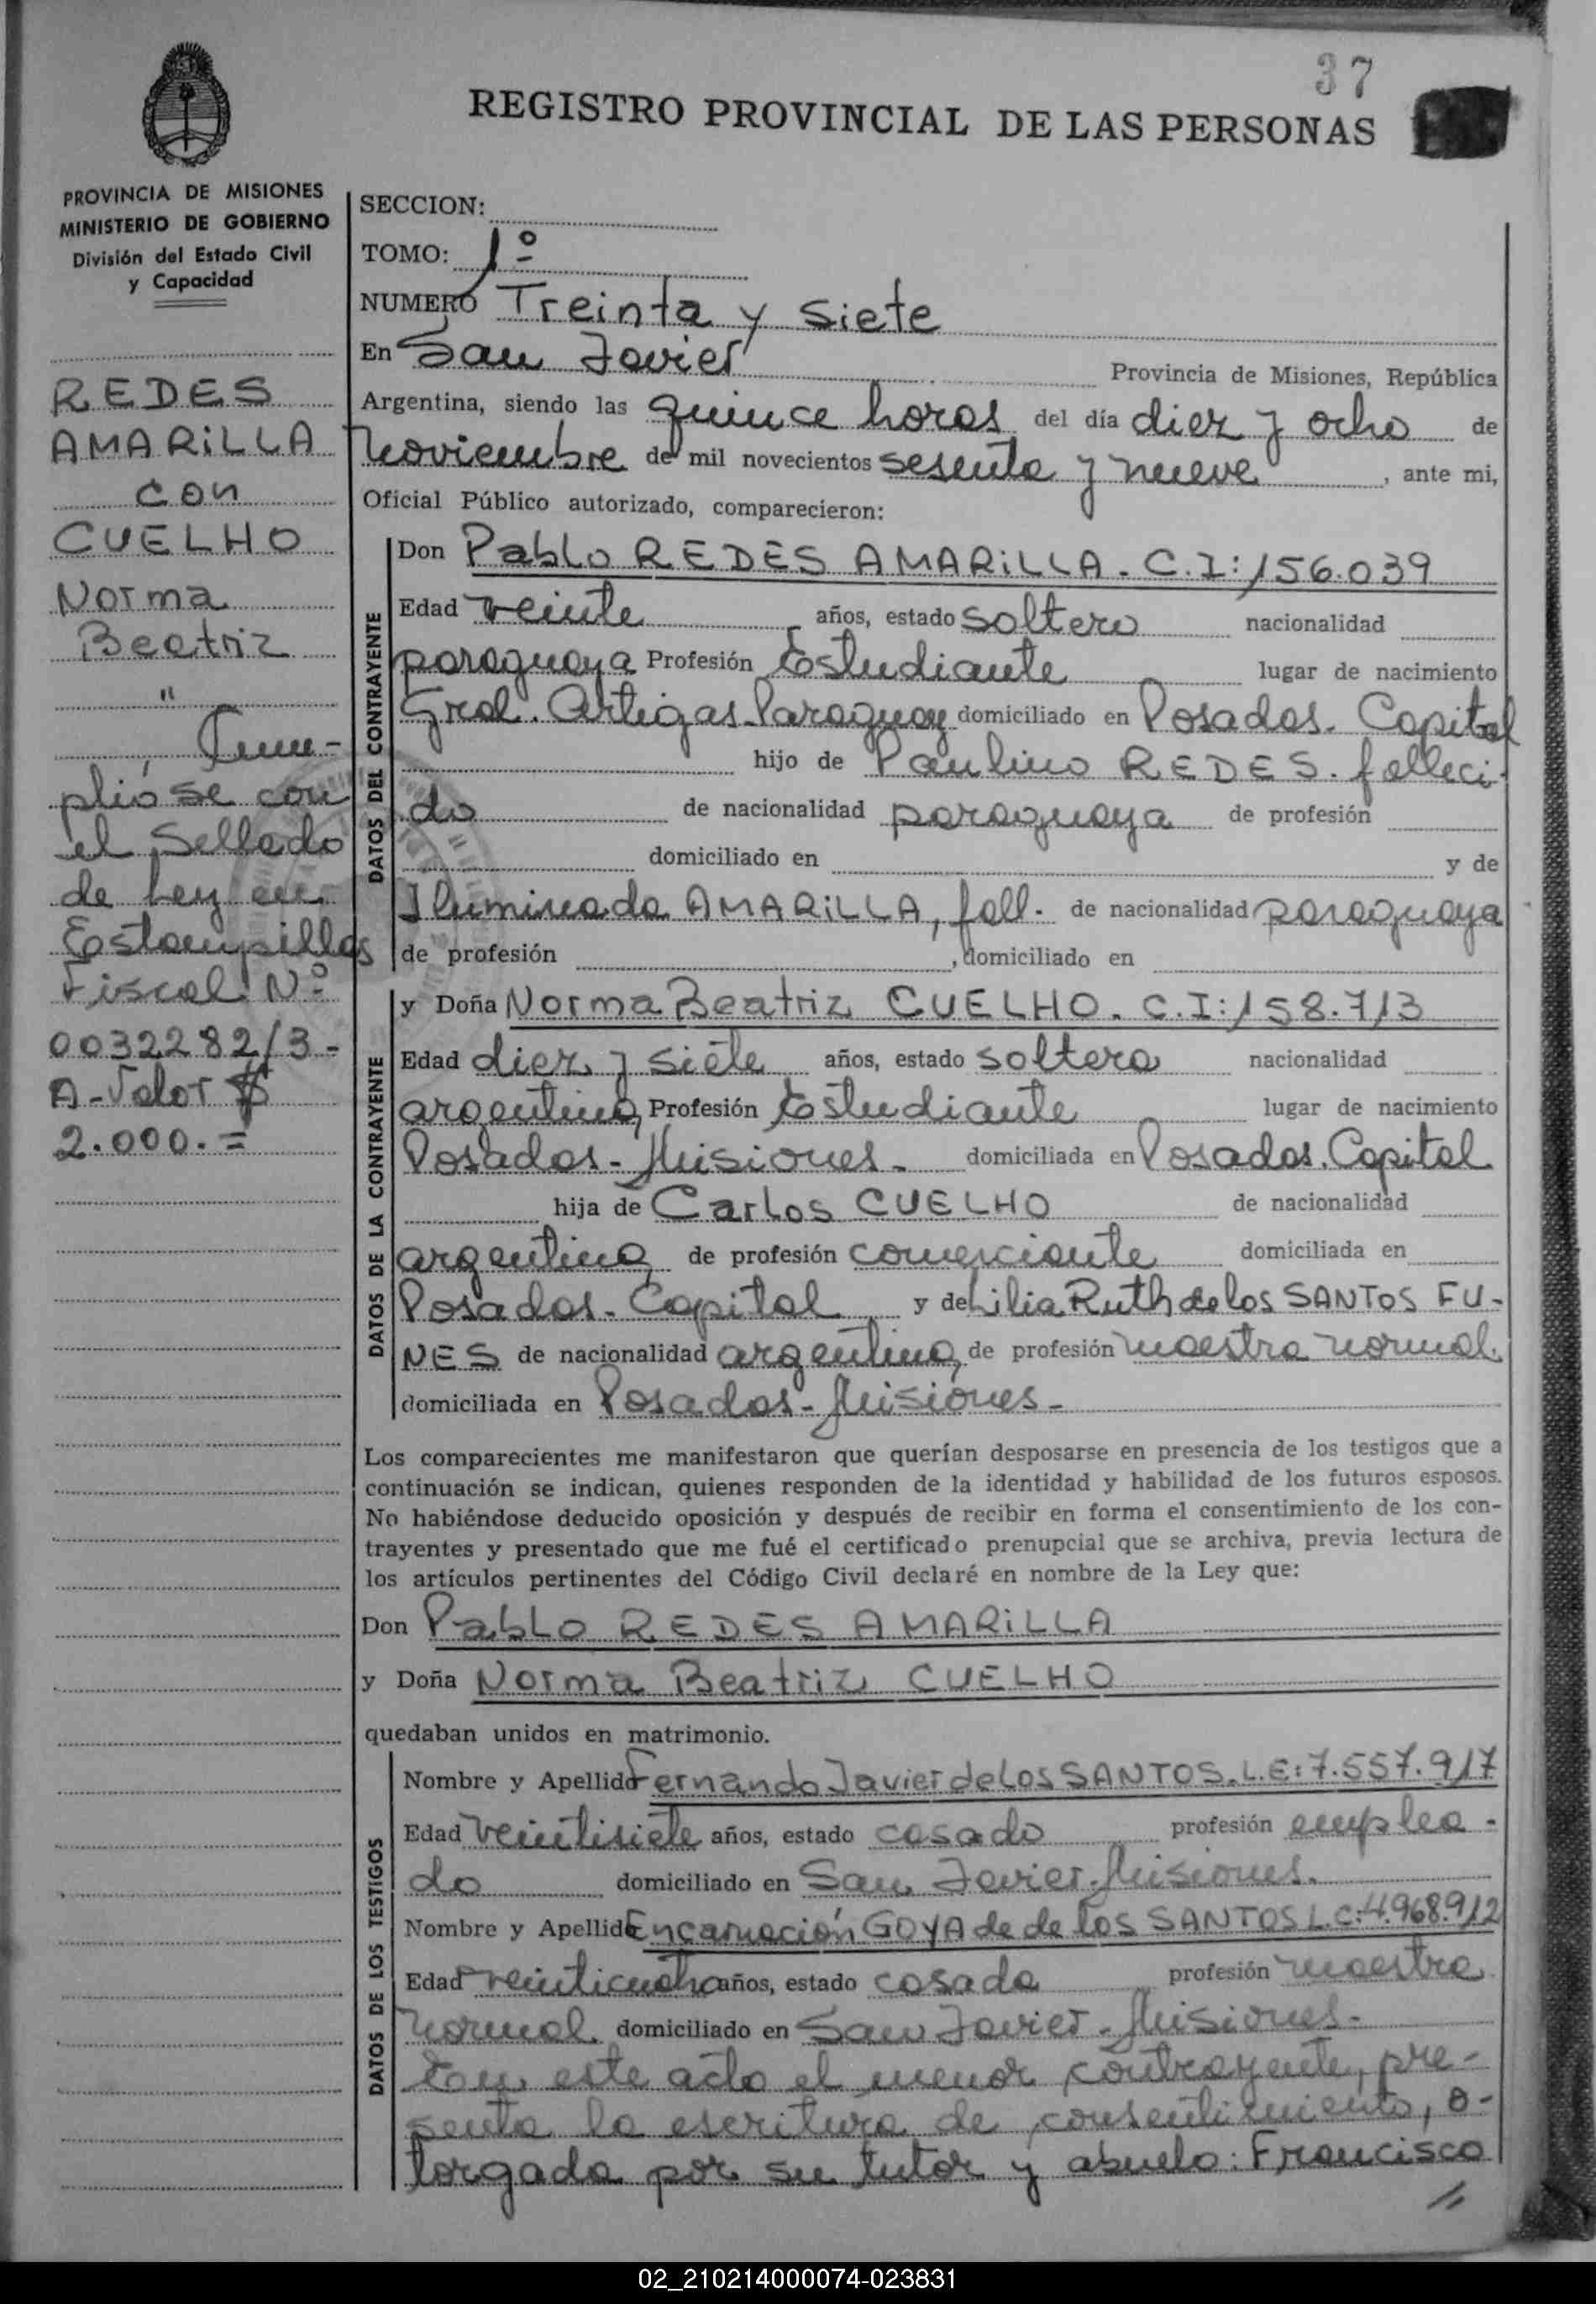 37
REGISTRO PROVINCIAL DE LAS PERSONAS
PROVINCIA DE MISIONES
MINISTERIO DE GOBIERNO
División del Estado Civil
y Capacidad
REDES
AMARILLA
con
CUELHO
Norma
Beatriz
"
Cum-
plióse con
el Sellado
de Ley en
Estampillas
Fiscal Nº
0032282/3-
A-Valor $
2.000.=
SECCION:
TOMO: 1º
NUMERO Treinta y siete
En San Javier Provincia de Misiones, República
Argentina, siendo las quince horas del día diez y ocho de
noviembre de mil novecientos sesenta y nueve, ante mi,
Oficial Público autorizado, comparecieron:
DATOS DEL CONTRAYENTE
Don Pablo REDES AMARILLA. C.I:156.039
Edad veinte años, estado soltero nacionalidad
paraguaya Profesión Estudiante lugar de nacimiento
Gral. Artigas-Paraguay domiciliado en Posadas. Capital
hijo de Paulino REDES. falleci-
do de nacionalidad paraguaya de profesión
domiciliado en y de
Iluminada AMARILLA, fall. de nacionalidad paraguaya
de profesión , domiciliado en
DATOS DE LA CONTRAYENTE
y Doña Norma Beatriz CUELHO. C.I:158.713
Edad diez y siete años, estado soltera nacionalidad
argentina, Profesión Estudiante lugar de nacimiento
Posadas-Misiones- domiciliada en Posadas. Capital
hija de Carlos CUELHO de nacionalidad
argentina, de profesión comerciante domiciliada en
Posadas-Capital y de Lilia Ruth de los SANTOS FU-
NES de nacionalidad argentina, de profesión maestra normal.
domiciliada en Posadas-Misiones-
Los comparecientes me manifestaron que querían desposarse en presencia de los testigos que a
continuación se indican, quienes responden de la identidad y habilidad de los futuros esposos.
No habiéndose deducido oposición y después de recibir en forma el consentimiento de los con-
trayentes y presentado que me fué el certificado prenupcial que se archiva, previa lectura de
los artículos pertinentes del Código Civil declaré en nombre de la Ley que:
Don Pablo REDES AMARILLA
y Doña Norma Beatriz CUELHO
quedaban unidos en matrimonio.
DATOS DE LOS TESTIGOS
Nombre y Apellido Fernando Javier de los SANTOS. L.E:7.557.917
Edad veintisiete años, estado casado profesión emplea-
do domiciliado en San Javier-Misiones.
Nombre y Apellido Encarnación GOYA de de los SANTOS L.C:4.968.912
Edad veinticuatro años, estado casada profesión maestra
normal. domiciliado en San Javier-Misiones-
En este acto el menor contrayente, pre-
senta la escritura de consentimiento, o-
torgada por su tutor y abuelo: Francisco
//
02_210214000074-023831